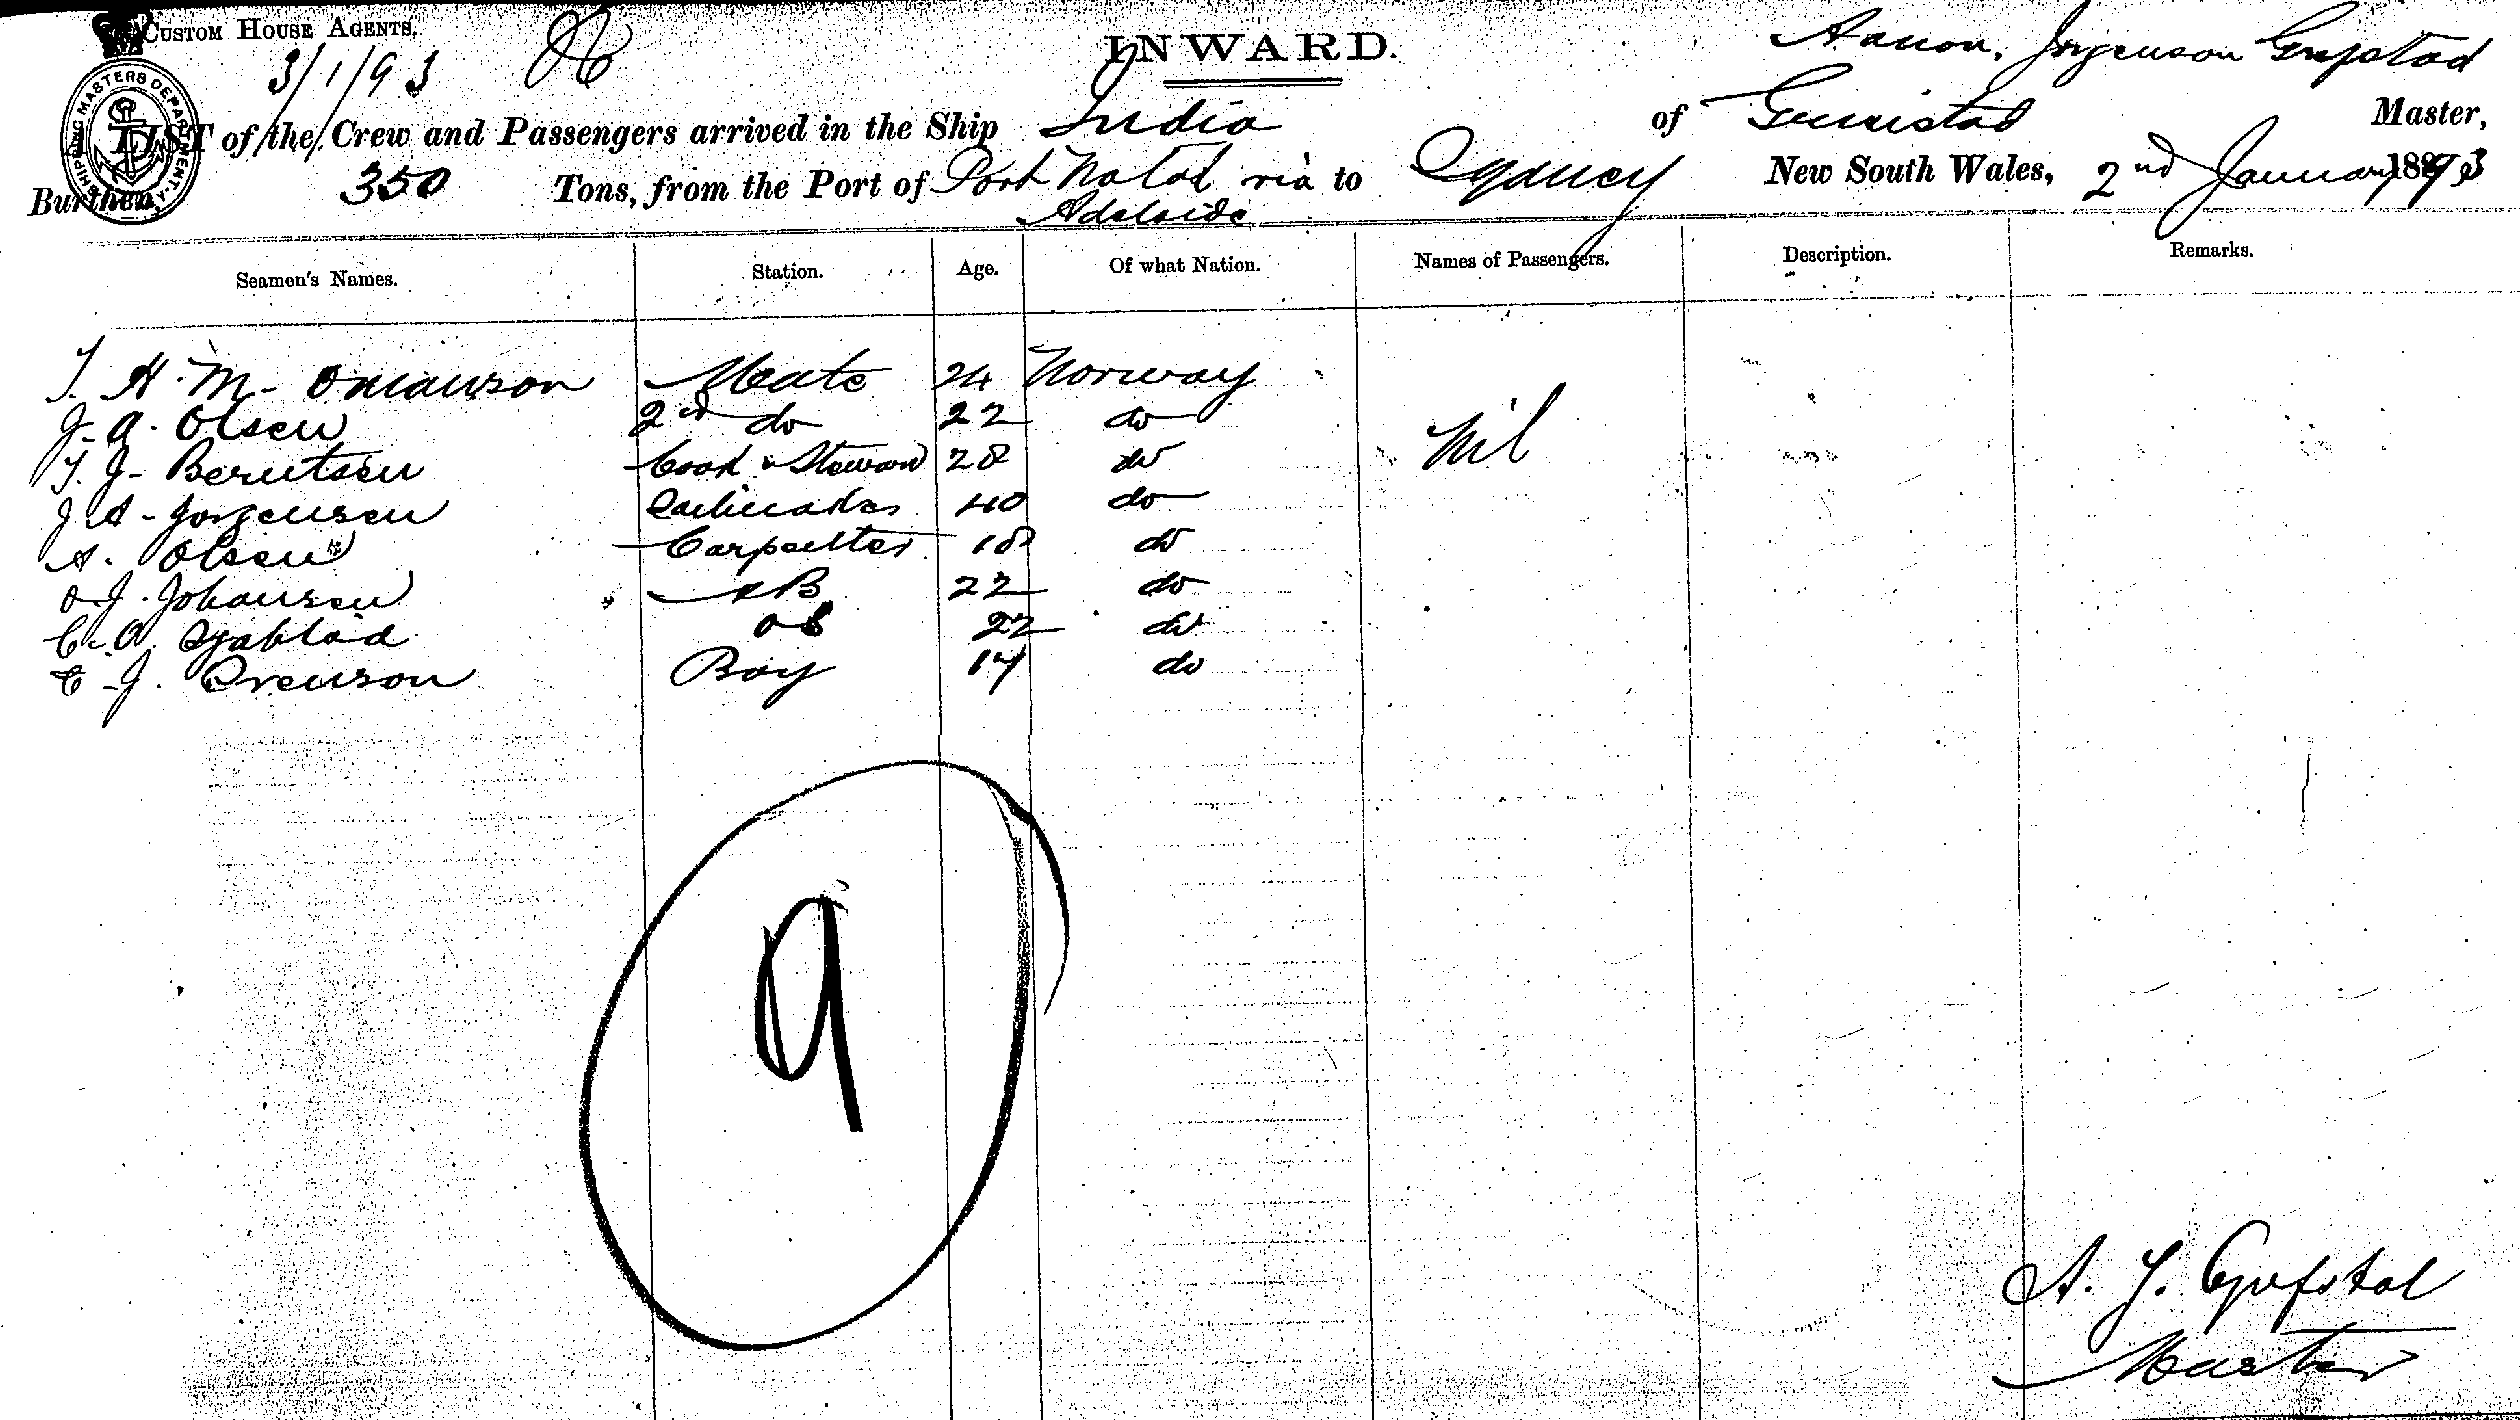 CUSTOM HOUSE AGENTS.
3/1/93
INWARD.
SHIPPING MASTERS DEPARTMENT
LIST of the Crew and Passengers arrived in the Ship India of Grimstad Aanon. Jorgenson Grefstad Master,
Burthen 350 Tons, from the Port of Port Natal via Adelaide to Sydney New South Wales, 2nd January 1893
Seamen's Names. Station. Age. Of what Nation. Names of Passengers. Description. Remarks.
T. H. M. Omanson Mate 24 Norway Nil
J. A. Olsen 2nd do 22 do
T. J. Berntsen Cook & Steward 28 do
J. A. Jorgensen Sailmaker 40 do
A. Olsen Carpenter 18 do
O. J. Johansen AB 22 do
C. A. OS 22 do
E. J. Boy 17 do
9
A. J. Grefstad
Master